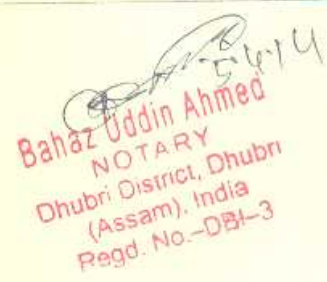 5.4.14
Bahaz Uddin Ahmed
NOTARY
Dhubri District, Dhubri
(Assam), India
Regd. No.-DBI-3